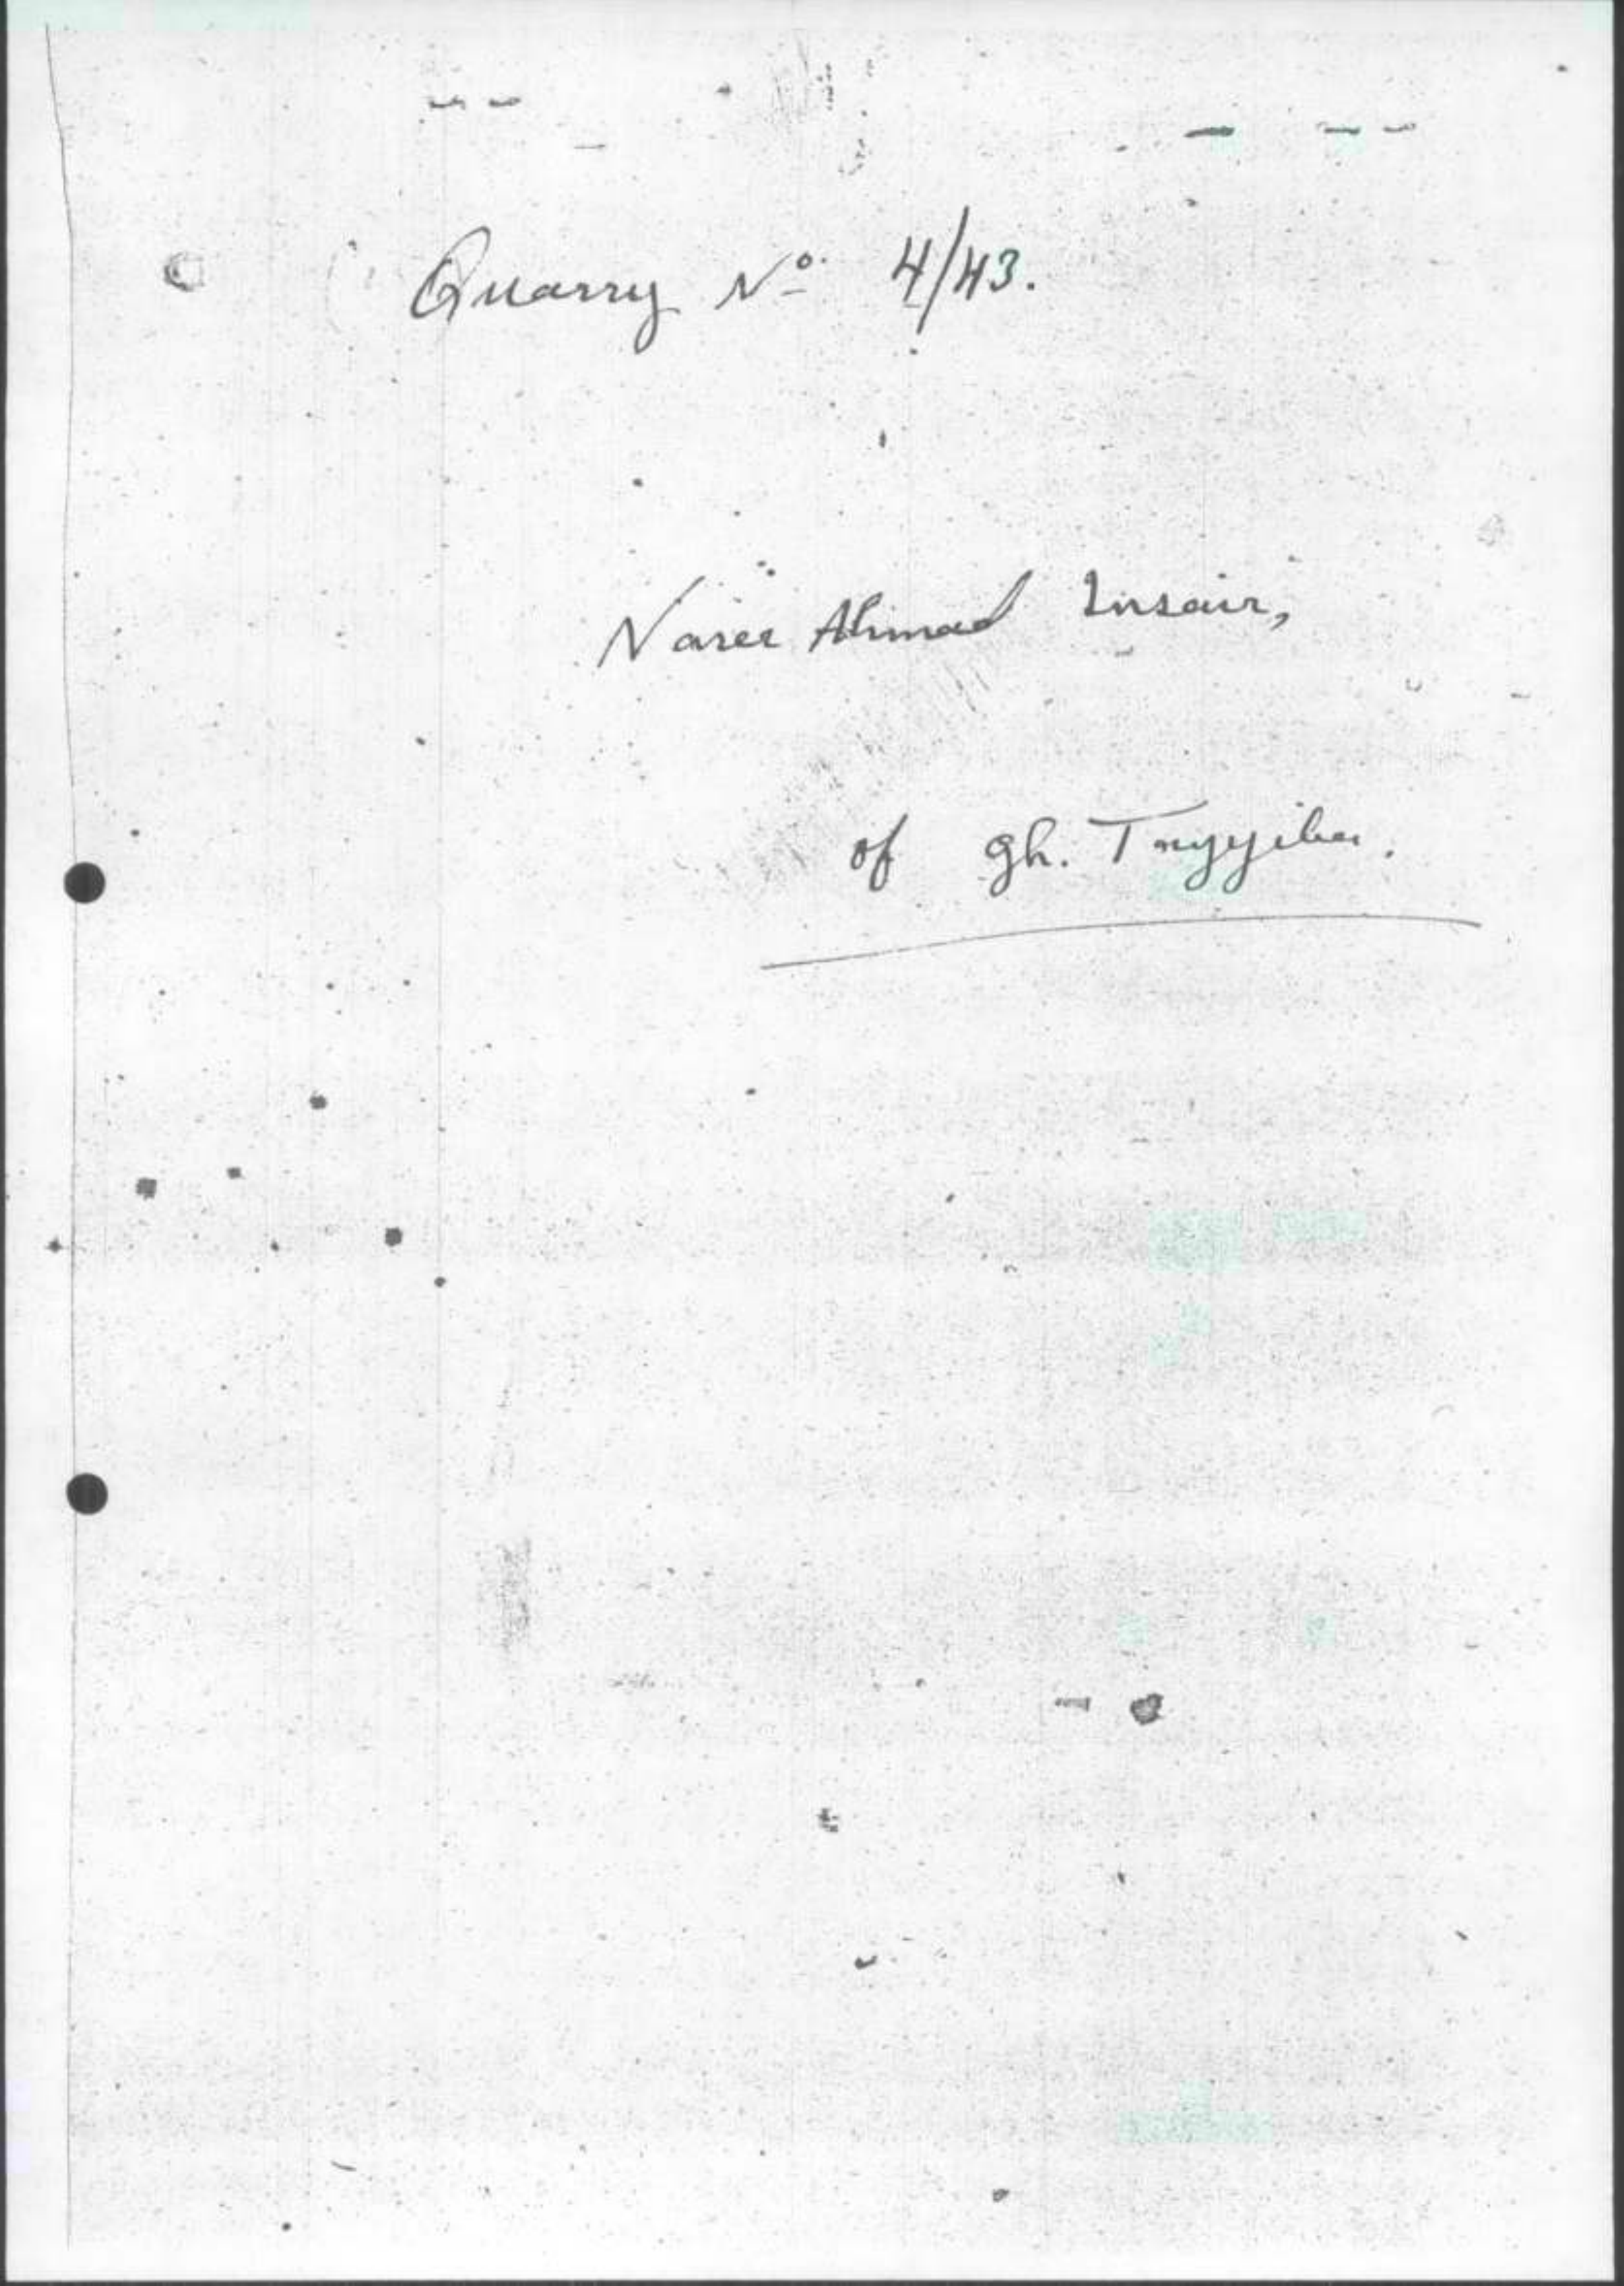 Quarry Nº 4/43.
Naser Ahmad Insair,
of Gh. Tayyiba.